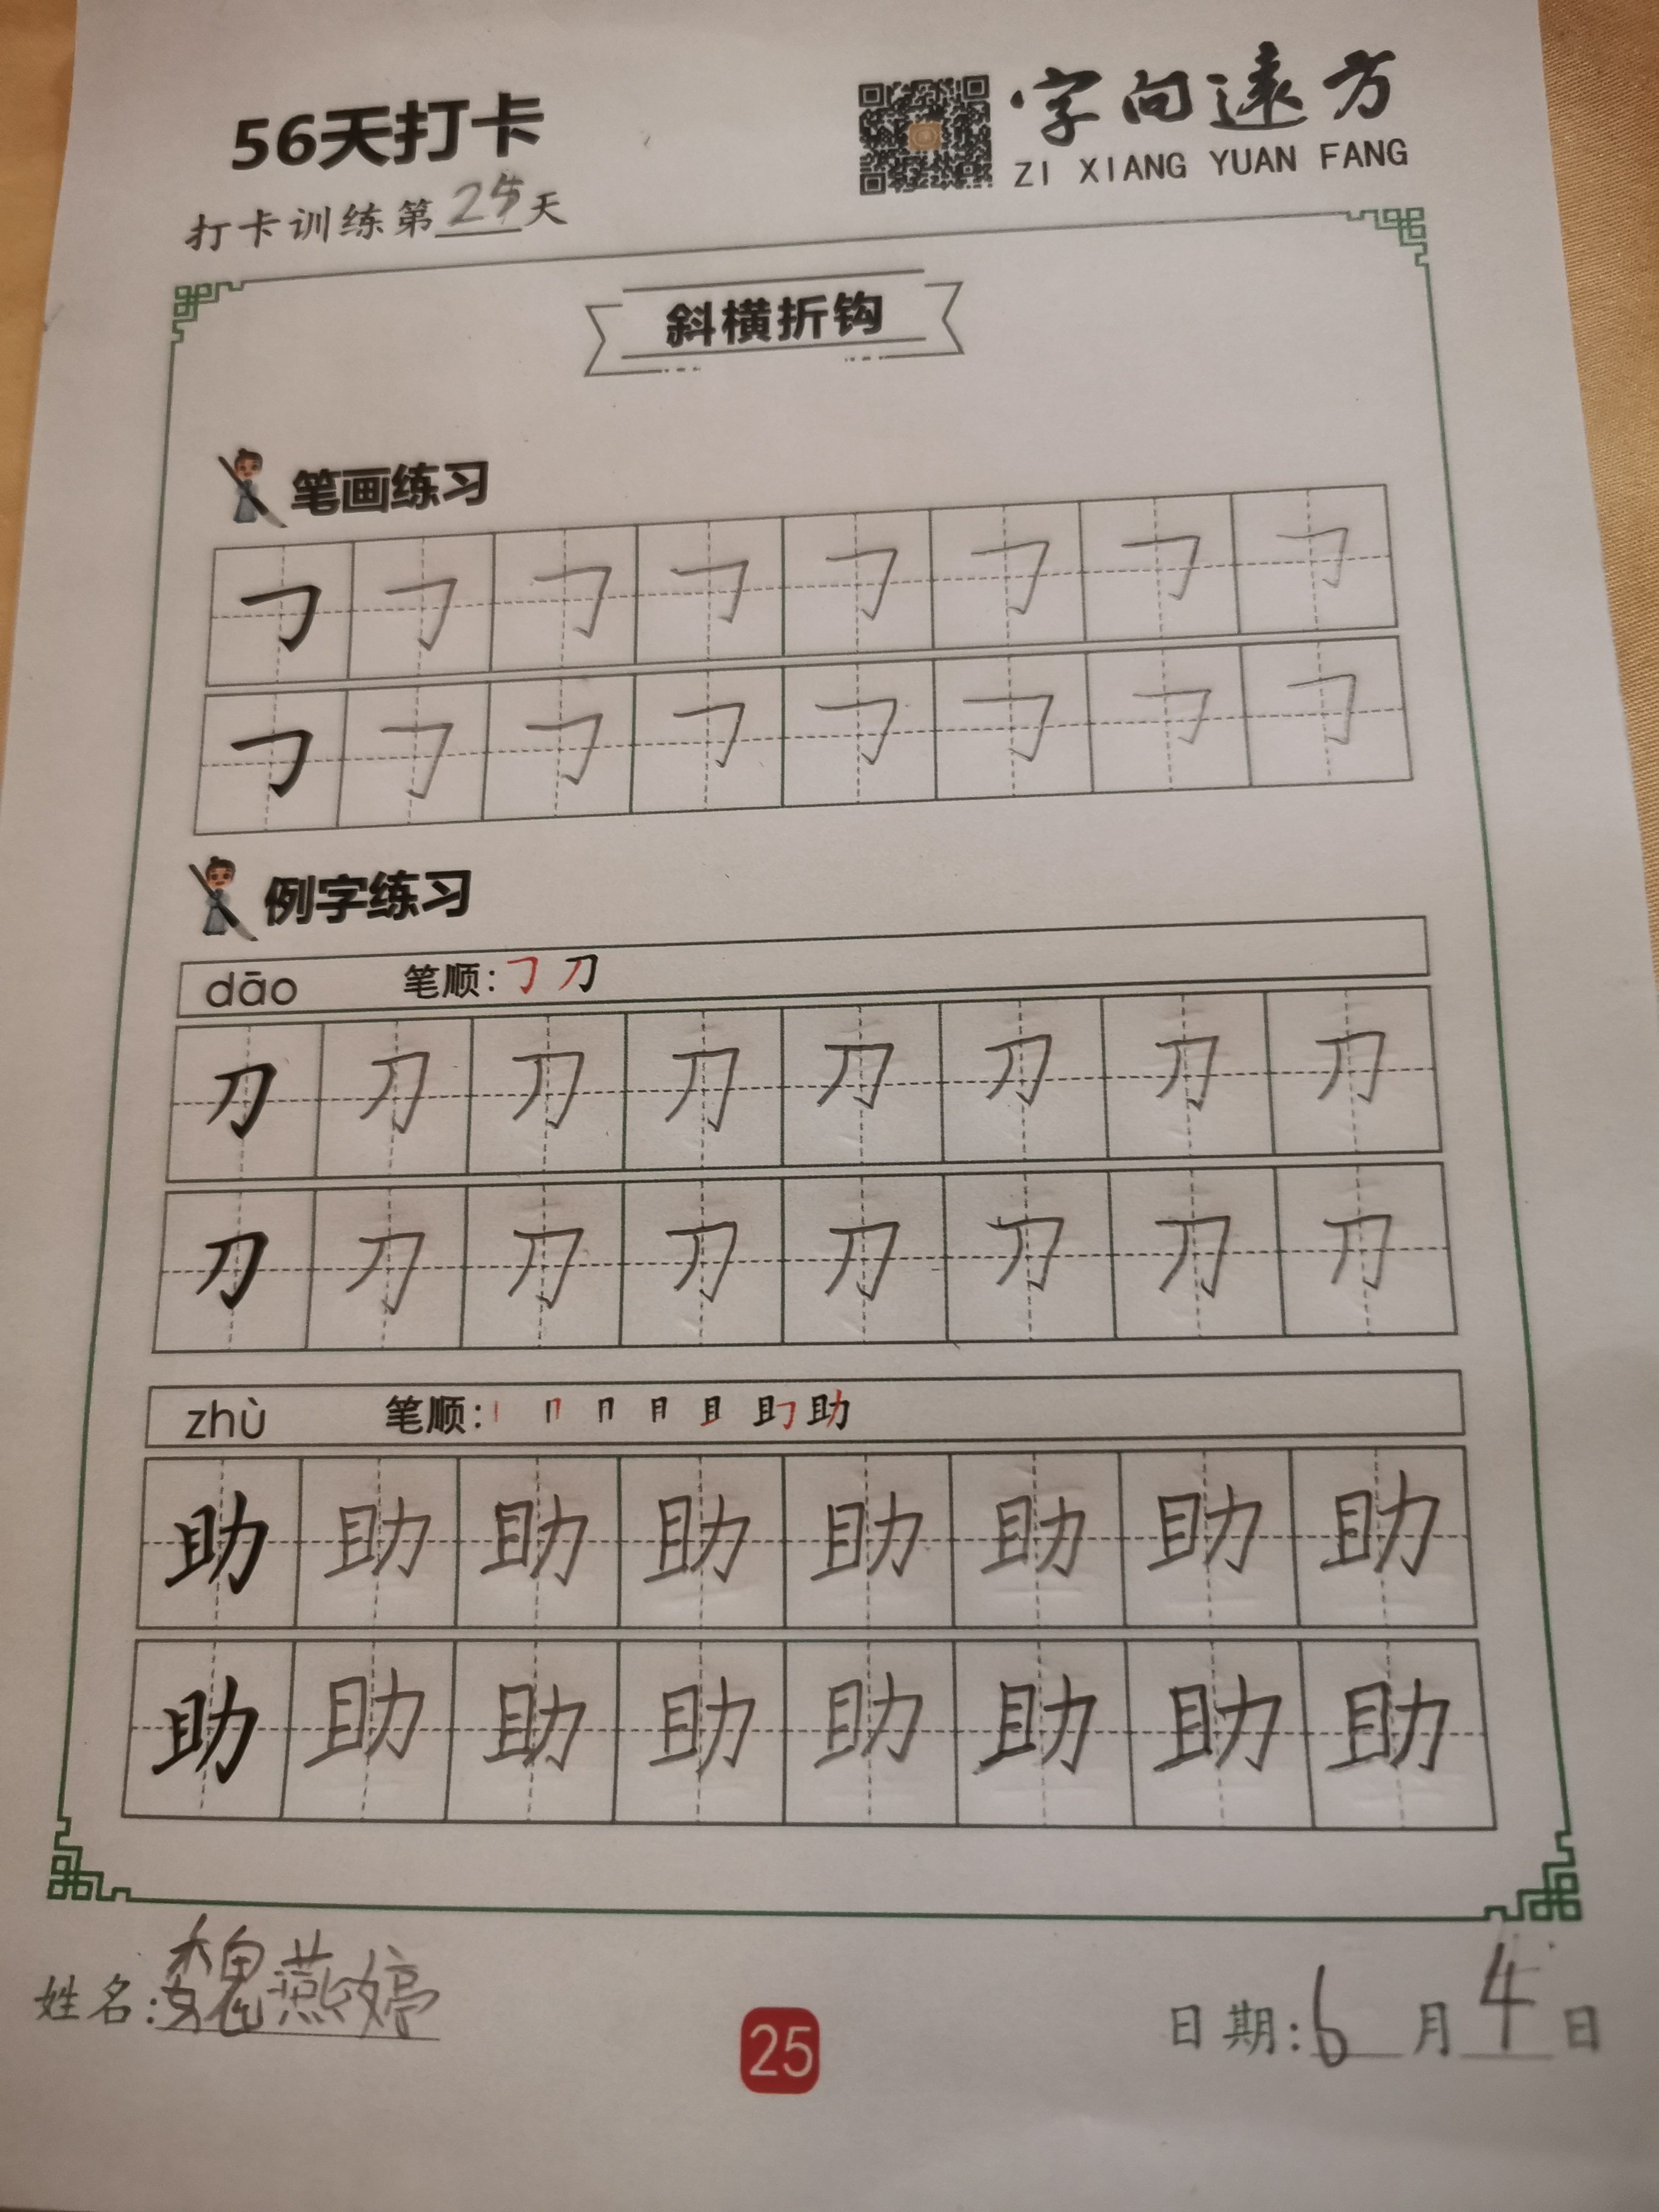 56天打卡
字向遠方
ZI XIANG YUAN FANG
打卡训练第25天
斜横折钩
笔画练习
例字练习
dāo 笔顺: 𠃌 刀
刀 刀 刀 刀 刀 刀 刀 刀
刀 刀 刀 刀 刀 刀 刀 刀
zhù 笔顺: 助
助 助 助 助 助 助 助 助
助 助 助 助 助 助 助 助
姓名:魏燕婷
25
日期:6月4日